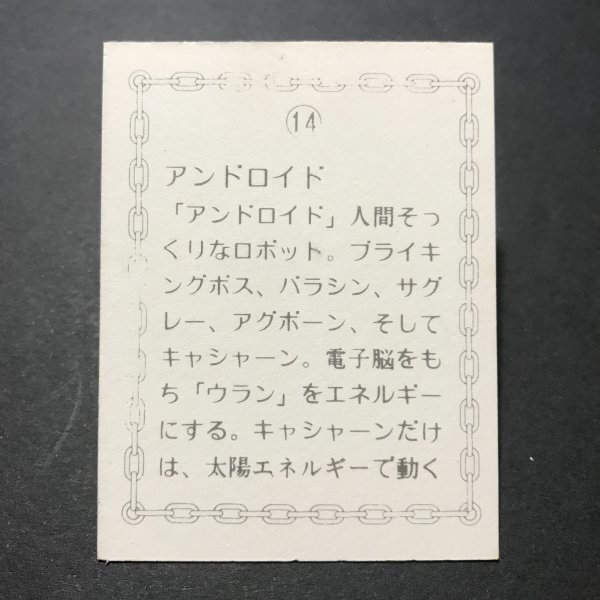 14
アンドロイド
「アンドロイド」人間そっ
くりなロボット。ブライキ
ングボス、バラシン、サグ
レー、アグボーン、そして
キャシャーン。電子脳をも
ち「ウラン」をエネルギー
にする。キャシャーンだけ
は、太陽エネルギーで動く